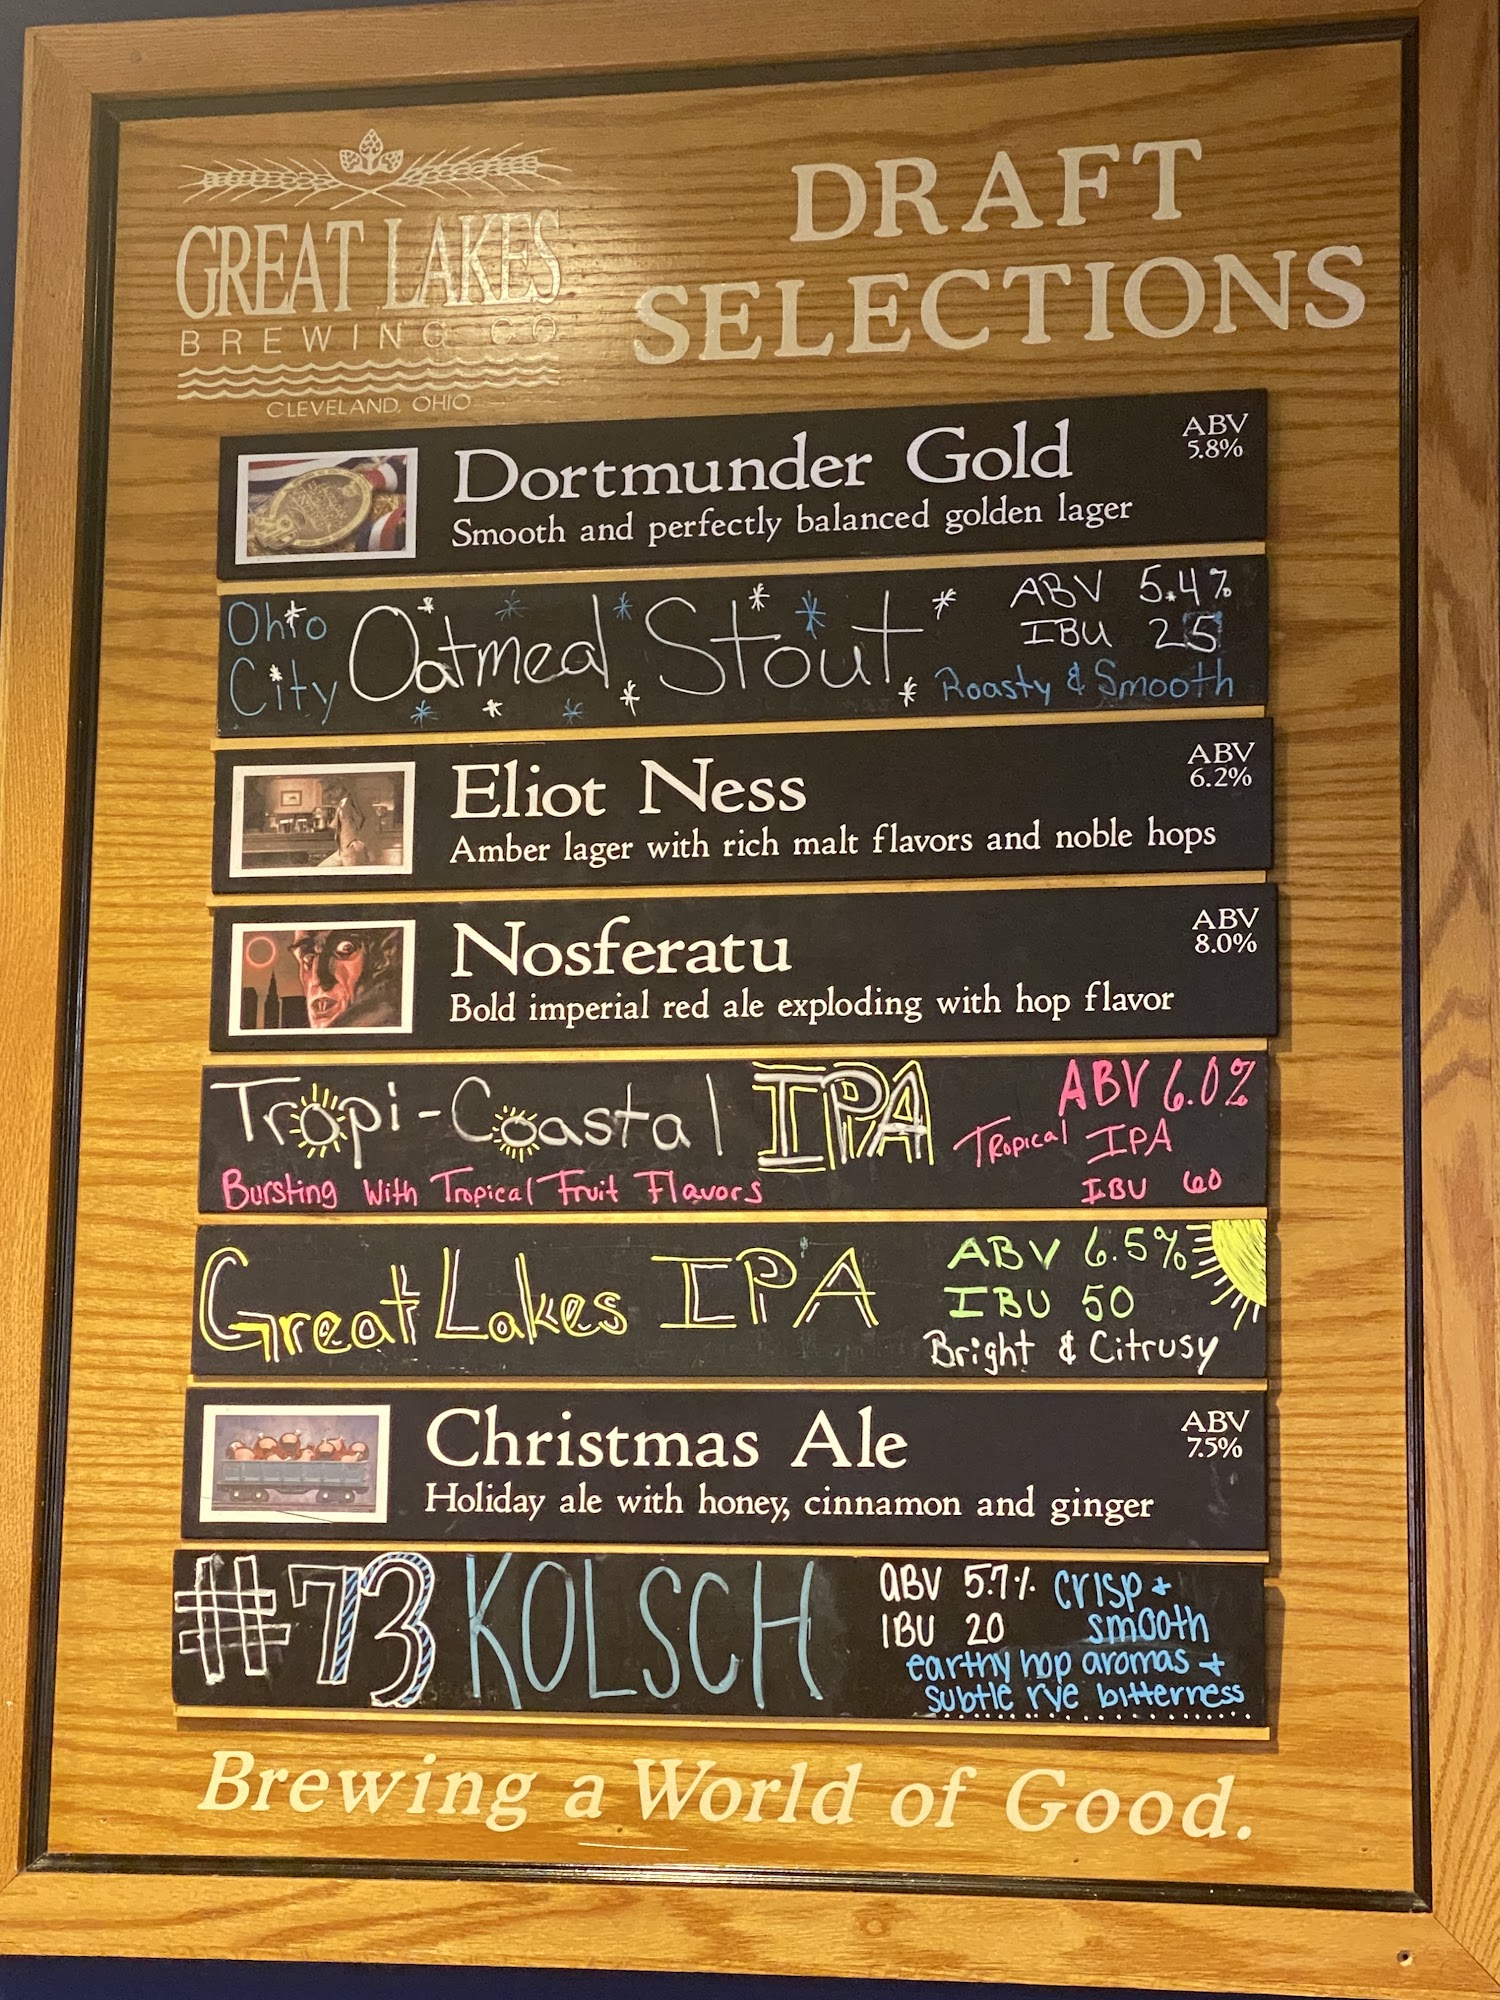 GREAT LAKES
BREWING CO
CLEVELAND, OHIO
DRAFT
SELECTIONS
Dortmunder Gold
Smooth and perfectly balanced golden lager
ABV
5.8%
Ohio
City
Oatmeal Stout
ABV 5.4%
IBU 25
Roasty & Smooth
Eliot Ness
Amber lager with rich malt flavors and noble hops
ABV
6.2%
Nosferatu
Bold imperial red ale exploding with hop flavor
ABV
8.0%
Tropi-Coastal IPA
Bursting With Tropical Fruit Flavors
ABV 6.0%
Tropical IPA
IBU 60
Great Lakes IPA
ABV 6.5%
IBU 50
Bright & Citrusy
Christmas Ale
Holiday ale with honey, cinnamon and ginger
ABV
7.5%
#73 KOLSCH
ABV 5.7%
IBU 20
crisp +
smooth
earthy hop aromas +
subtle rye bitterness
Brewing a World of Good.